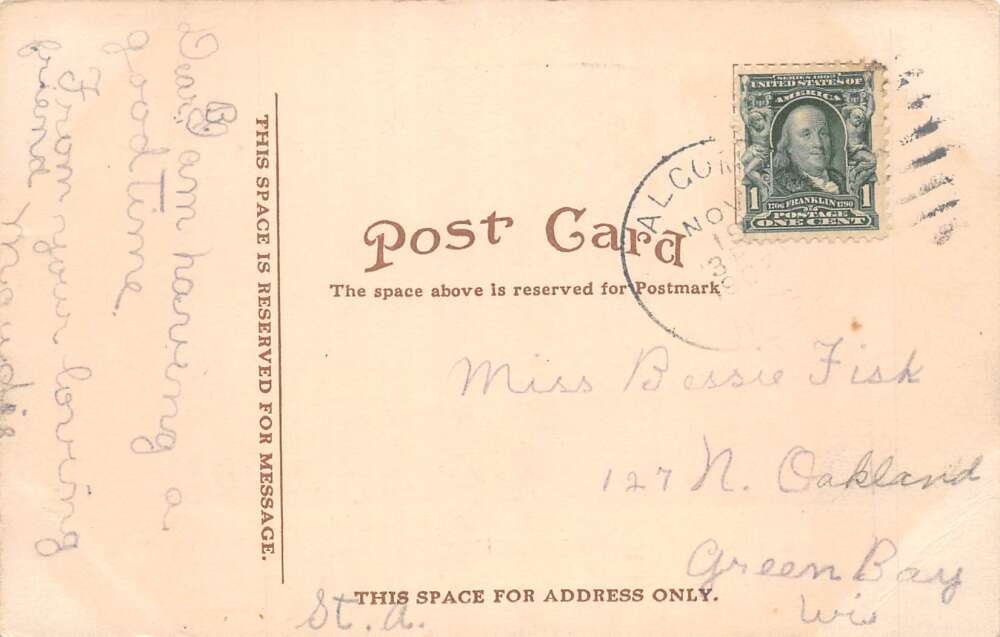 Dear B.
I am having a
good time.
From your loving
friend
THIS SPACE IS RESERVED FOR MESSAGE.
Post Card
The space above is reserved for Postmark
SERIES 1902
UNITED STATES OF
AMERICA
1 1
1706 FRANKLIN 1790
POSTAGE
ONE CENT
ALGOM
NOV
Miss Bessie Fisk
127 N. Oakland
Green Bay
Wis
St. A.
THIS SPACE FOR ADDRESS ONLY.